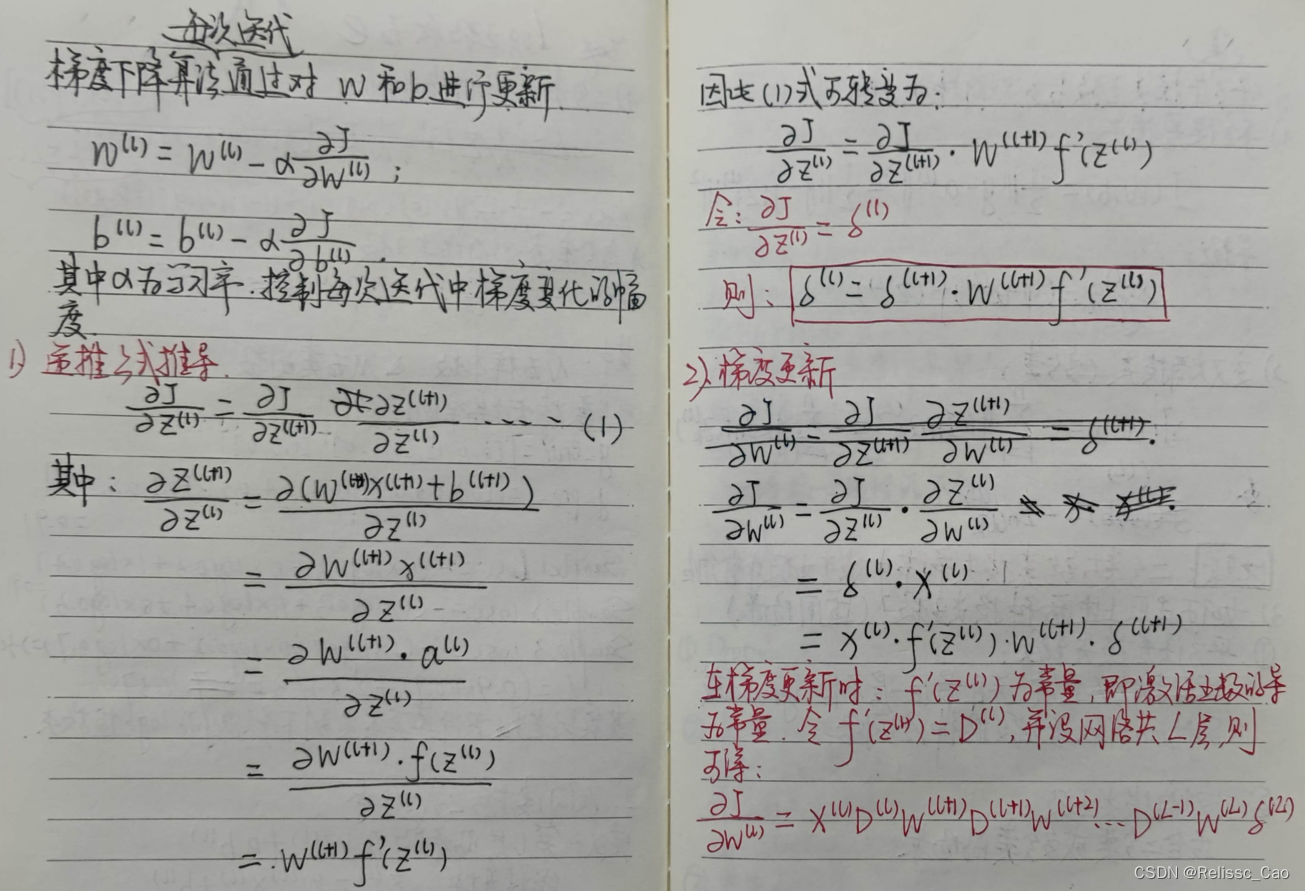 每次迭代
梯度下降算法通过对 W 和 b 进行更新
W^(l) = W^(l) - α ∂J/∂W^(l) ;
b^(l) = b^(l) - α ∂J/∂b^(l) .
其中α为学习率. 控制每次迭代中梯度变化的幅
度.
1) 递推公式推导.
∂J/∂Z^(l) = ∂J/∂Z^(l+1) ∂Z^(l+1)/∂Z^(l) ····· (1)
其中: ∂Z^(l+1)/∂Z^(l) = ∂(W^(l+1)x^(l+1) + b^(l+1))/∂Z^(l)
= ∂W^(l+1)x^(l+1)/∂Z^(l)
= ∂W^(l+1)·a^(l)/∂Z^(l)
= ∂W^(l+1)·f(Z^(l))/∂Z^(l)
= W^(l+1) f'(Z^(l))
因此(1)式可转变为:
∂J/∂Z^(l) = ∂J/∂Z^(l+1) · W^(l+1) f'(Z^(l))
令: ∂J/∂Z^(l) = δ^(l)
则: δ^(l) = δ^(l+1)·W^(l+1) f'(Z^(l))
2) 梯度更新
∂J/∂W^(l) = ∂J/∂Z^(l+1) ∂Z^(l+1)/∂W^(l) = δ^(l+1).
∂J/∂W^(l) = ∂J/∂Z^(l) · ∂Z^(l)/∂W^(l)
= δ^(l)·X^(l)
= X^(l)·f'(Z^(l))·W^(l+1)·δ^(l+1)
在梯度更新时: f'(Z^(l)) 为常量, 即激活函数的导
为常量. 令 f'(Z^(l)) = D^(l), 并设网络共L层, 则
可得:
∂J/∂W^(l) = X^(l)D^(l)W^(l+1)D^(l+1)W^(l+2)···D^(L-1)W^(L)δ^(L)
CSDN @Relissc_Cao